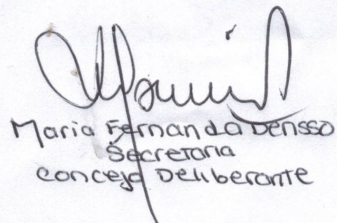 Maria Fernanda Densso
Secretaria
Concejo Deliberante